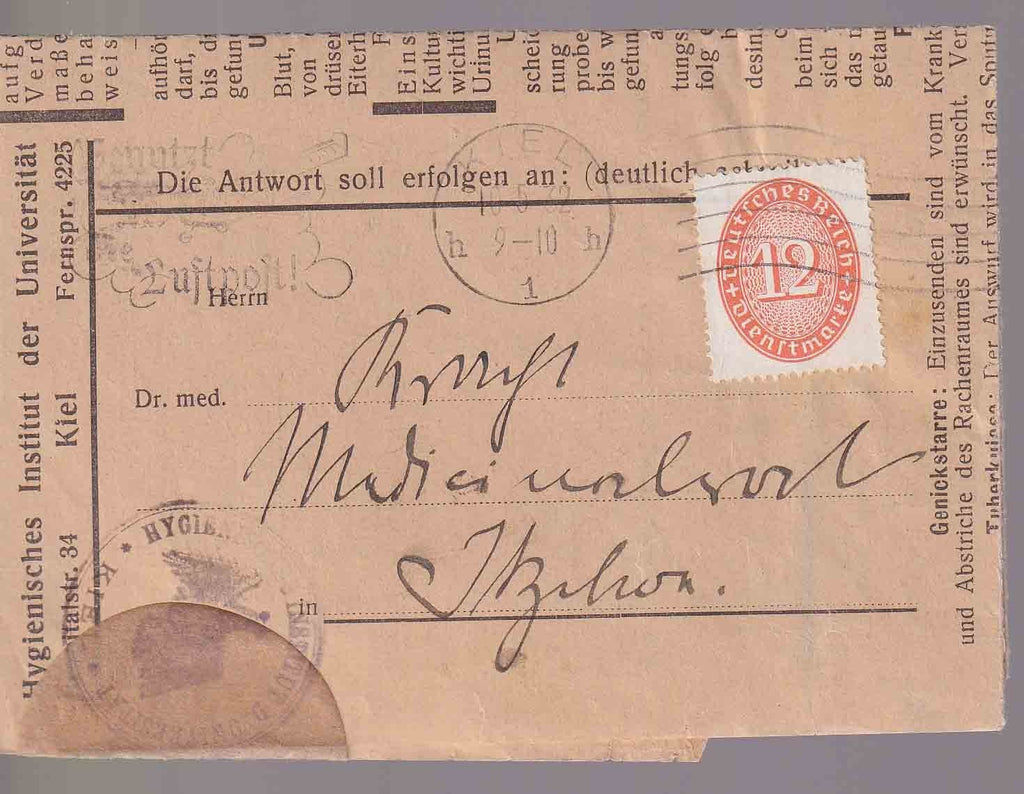 aufg
Verd
maße
beha
weis
aufhör
darf,
bis d
gefun
U
Blut,
von
drüse
Eiterh
F
Eins
Kultu
wichti
Urinu
schei
rung
probe
bis w
gefun
a
tungs
folg e
b
desin
beim
sich
das n
getau
Hygienisches Institut der Universität
Kiel Fernspr. 4225
italstr. 34
Benutzt
Luftpost!
Die Antwort soll erfolgen an: (deutlich
KIEL
h 9-10 h
1
Deutsches Reich
12
+ Dienstmarke +
Herrn
Dr. med.
Medicinalrat
in Itzehoe.
* HYGIEN
Genickstarre: Einzusenden sind vom Krank
und Abstriche des Rachenraumes sind erwünscht. Ver
Tuberkulose: Der Auswurf wird in das Sputu